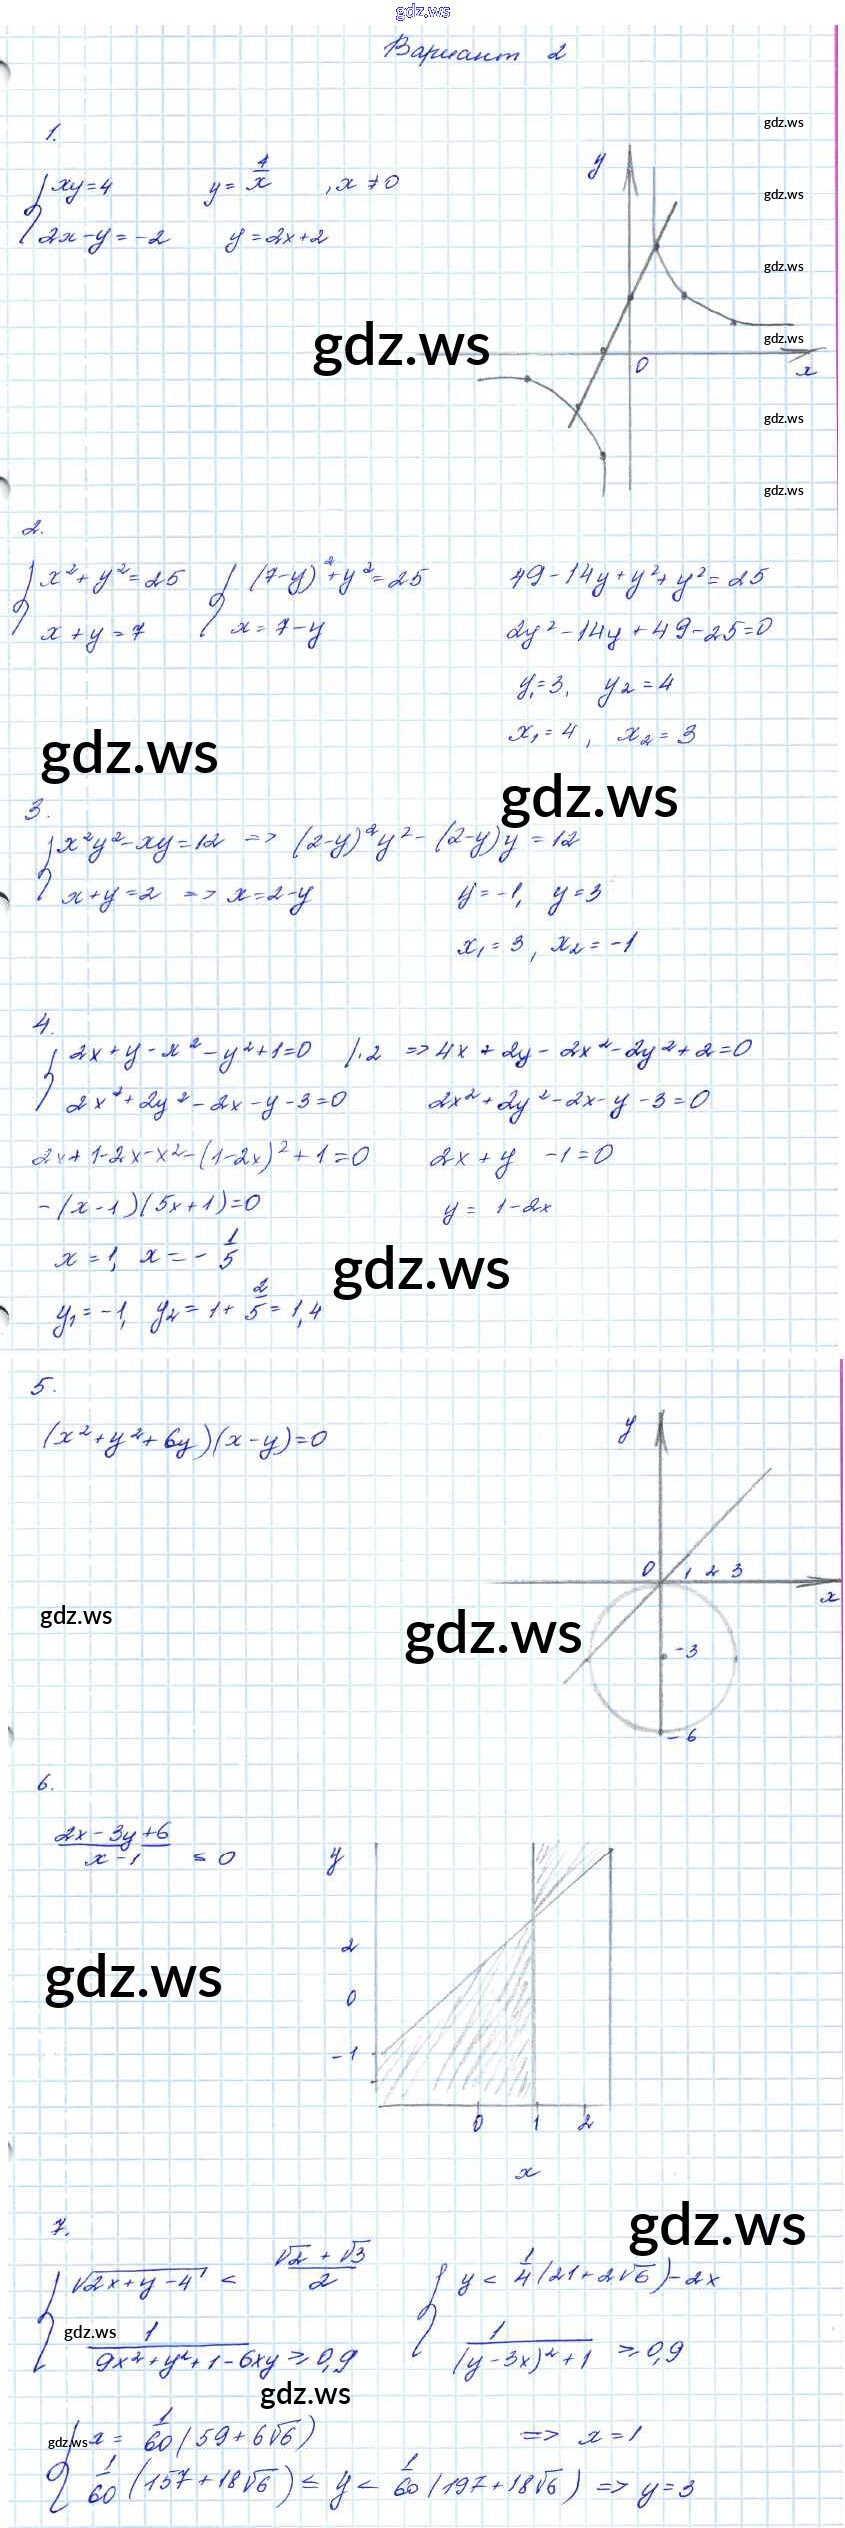 gdz.ws
Вариант 2
gdz.ws
1.
{ xy=4   y= 4/x , x ≠ 0
2x-y=-2   y=2x+2
y
0
x
gdz.ws
gdz.ws
gdz.ws
gdz.ws
gdz.ws
gdz.ws
2.
{ x²+y²=25   { (7-y)²+y²=25   49-14y+y²+y²=25
x+y=7   x=7-y   2y²-14y+49-25=0
y₁=3, y₂=4
x₁=4, x₂=3
gdz.ws
gdz.ws
3.
{ x²y²-xy=12 => (2-y)²y²-(2-y)y=12
x+y=2 => x=2-y   y=-1, y=3
x₁=3, x₂=-1
4.
{ 2x+y-x²-y²+1=0 |·2 => 4x+2y-2x²-2y²+2=0
2x²+2y²-2x-y-3=0   2x²+2y²-2x-y-3=0
2x+1-2x-x²-(1-2x)²+1=0   2x+y -1=0
-(x-1)(5x+1)=0   y= 1-2x
x=1, x=- 1/5
gdz.ws
y₁=-1, y₂=1+ 2/5 =1,4
5.
(x²+y²+6y)(x-y)=0
y
0 1 2 3
x
-3
-6
gdz.ws
gdz.ws
6.
(2x-3y+6)/(x-1) ≤ 0
y
2
0
-1
0 1 2
x
gdz.ws
7.
gdz.ws
{ √(2x+y-4) < (√2+√3)/2   { y < 1/4(21+2√6)-2x
gdz.ws
1/(9x²+y²+1-6xy) ≥ 0,9   1/((y-3x)²+1) ≥ 0,9
gdz.ws
gdz.ws
{ x= 1/60(59+6√6)   => x=1
1/60(157+18√6) ≤ y < 1/60(197+18√6) => y=3